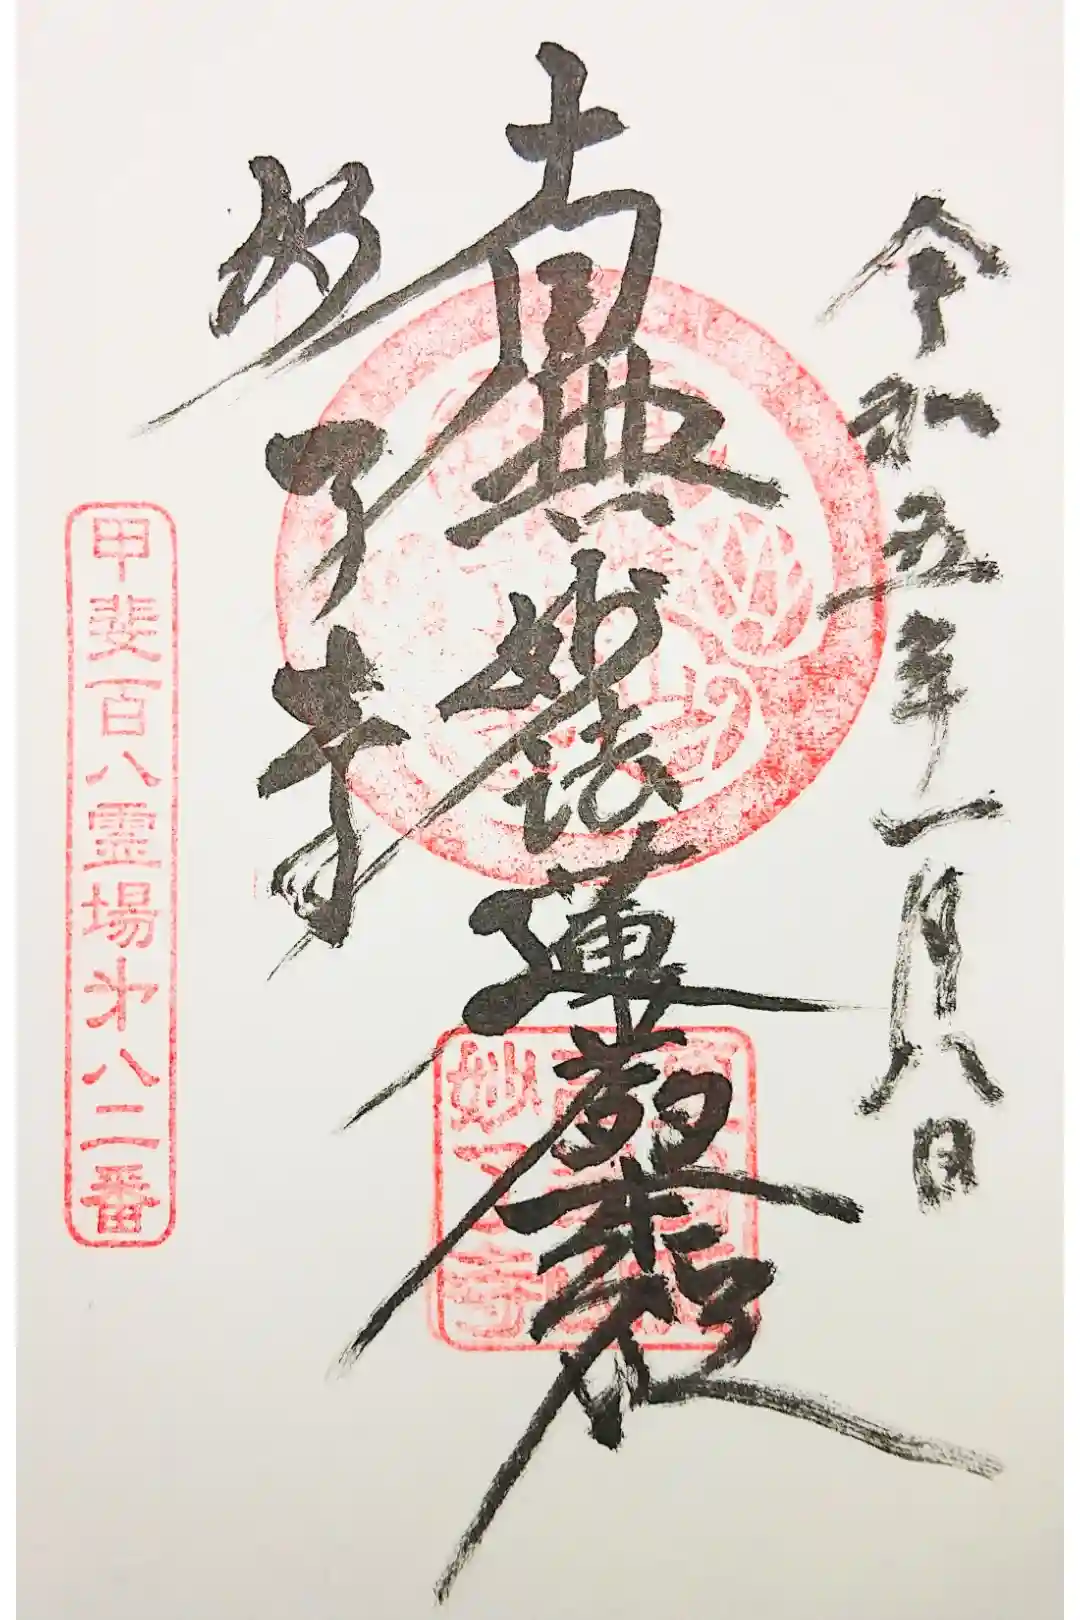 令和五年一月八日
南無妙法蓮華経
妙了寺
甲斐百八霊場㐧八二番
妙了寺